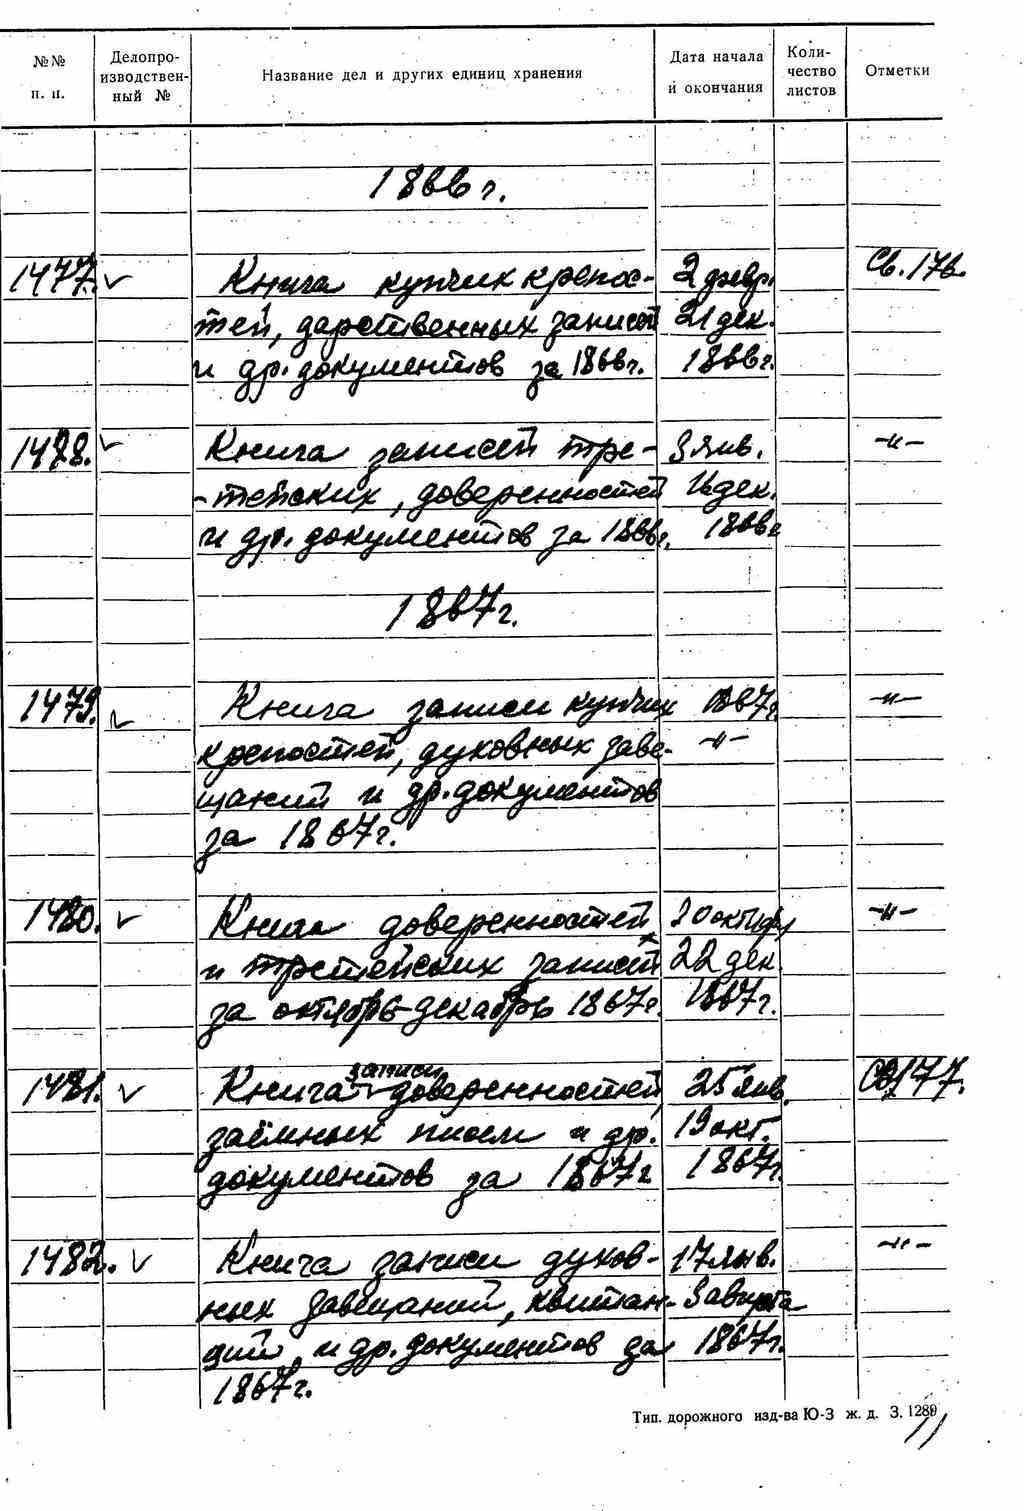 №№ п. п.
Делопро-
изводствен-
ный №
Название дел и других единиц хранения
Дата начала
и окончания
Коли-
чество
листов
Отметки
1866 г.
1477. ✓ Книга купчих крепос- 2 февр. Св. 176.
тей, дарственных записей 21 дек.
и др. документов за 1866 г. 1866 г.
1478. ✓ Книга записей тре- 3 янв. -"-
-тейских, доверенностей 16 дек.
и др. документов за 1866 г. 1866 г.
1867 г.
1479. ✓ Книга записи купчих 1867 г. -"-
крепостей, духовных заве- -"-
щаний и др. документов
за 1867 г.
1480. ✓ Книга доверенностей 20 октября -"-
и третейских записей 22 дек.
за октябрь-декабрь 1867 г. 1867 г.
1481. ✓ Книга записи доверенностей, 25 янв. Св. 177.
заёмных писем и др. 19 окт.
документов за 1867 г. 1867 г.
1482. ✓ Книга записи духов- 17 янв. -"-
ных завещаний, квитан- 3 августа
ций и др. документов за 1867 г.
1867 г.
Тип. дорожного изд-ва Ю-З ж. д. З. 1289
11